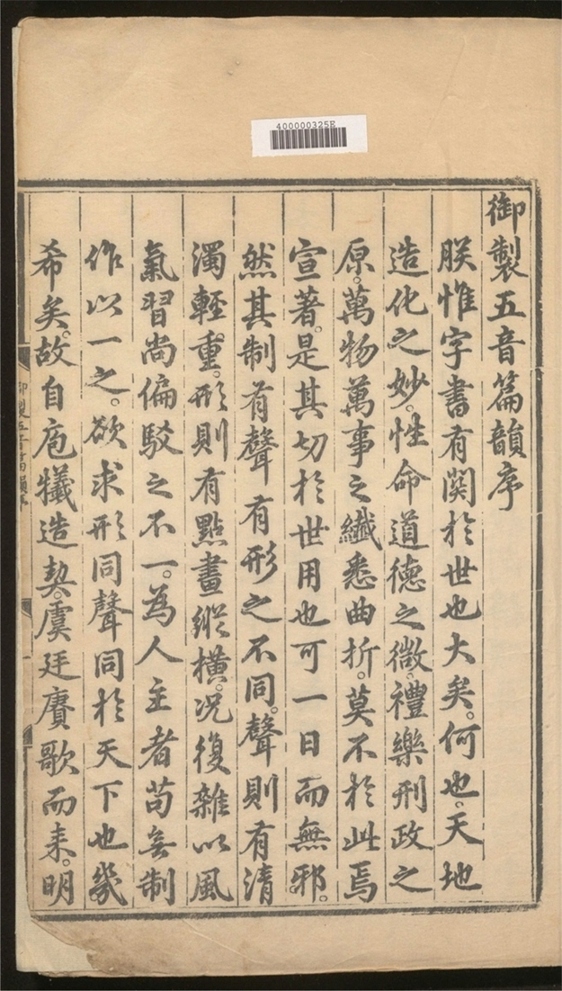 400000325R
御製五音篇韻序
朕惟字書有関於世也大矣。何也。天地
造化之妙。性命道德之微。禮樂刑政之
原。萬物萬事之纖悉曲折。莫不於此焉
宣著。是其切於世用也可一日而無邪。
然其制有聲有形之不同。聲則有清
濁輕重。形則有點畫縱横。况復雜以風
氣習尚偏駁之不一。為人主者苟無制
作以一之。欲求形同聲同於天下也幾
希矣。故自庖犧造契。虞廷賡歌而来。明